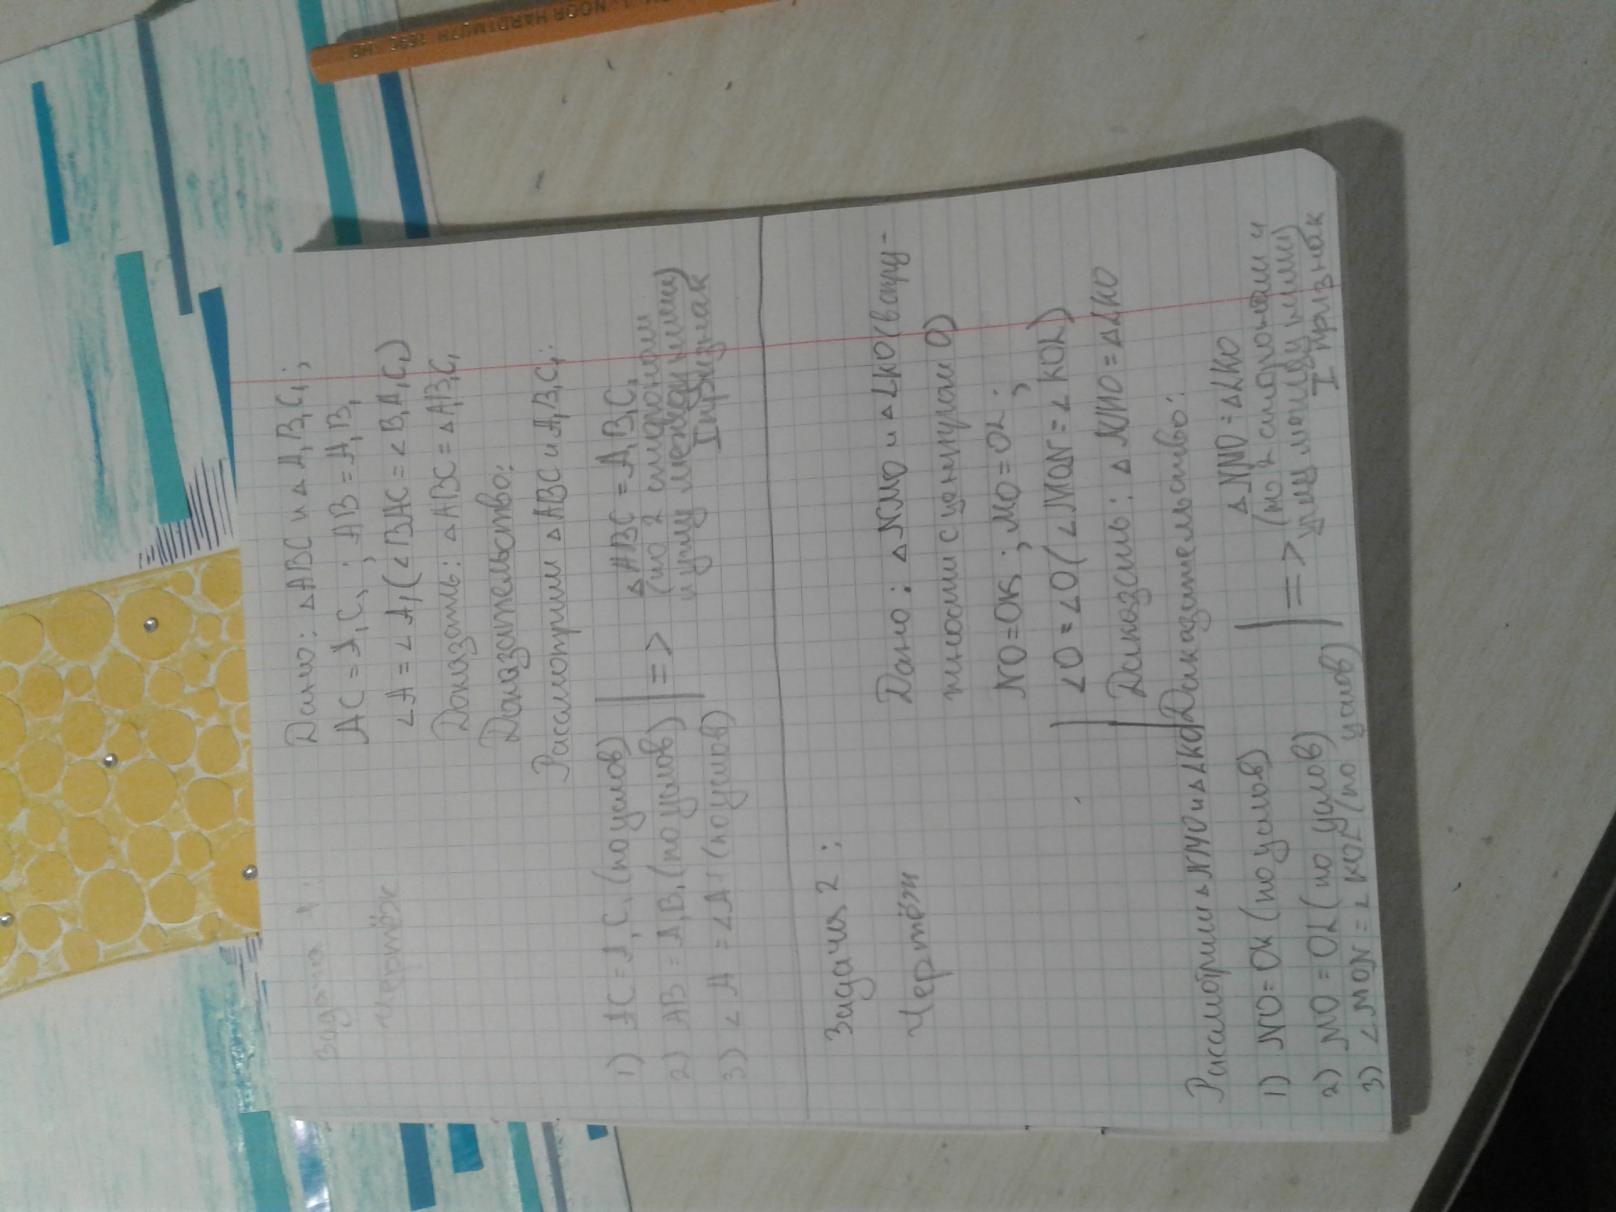 Задача 1:
Чертёж
Дано: △ABC и △A₁B₁C₁;
AC = A₁C₁; AB = A₁B₁
∠A = ∠A₁(∠BAC = ∠B₁A₁C₁)
Доказать: △ABC = △A₁B₁C₁
Доказательство:
Рассмотрим △ABC и A₁B₁C₁:
1) AC = A₁C₁ (по услов)
2) AB = A₁B₁ (по услов)
3) ∠A = ∠A₁ (по услов)
=> △ABC = A₁B₁C₁
(по 2 сторонам
и углу между ними)
I признак
Задача 2:
Чертёж
Дано: △NMO и △LKO (в окру-
жности с центром O)
NO = OK; MO = OL;
∠O = ∠O (∠MON = ∠KOL)
Доказать: △NMO = △LKO
Доказательство:
Рассмотрим △NMO и △LKO
1) NO = OK (по услов)
2) MO = OL (по услов)
3) ∠MON = ∠KOL (по услов)
=> △NMO = △LKO
(по 2 сторонам и
углу между ними)
I признак
KOH-I-NOOR HARDTMUTH HB